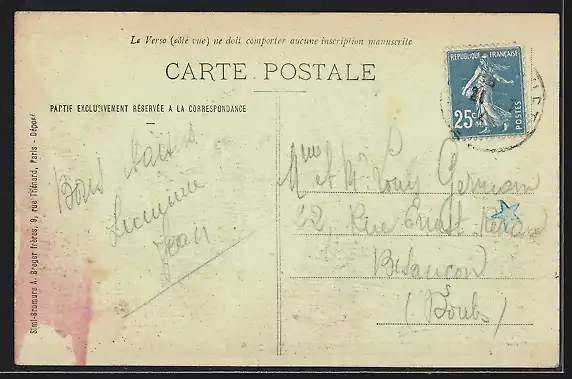 Le Verso (côté vue) ne doit comporter aucune inscription manuscrite
CARTE POSTALE
PARTIE EXCLUSIVEMENT RÉSERVÉE A LA CORRESPONDANCE
RÉPUBLIQUE FRANÇAISE
25c
POSTES
Bons baisers
Lucienne
Jean
Mme et Mr. Louis Germain
22, Rue Ernest Renan
Besançon
(Doubs)
Simili-Bromure A. Breger frères, 9, rue Thénard, Paris - Déposé